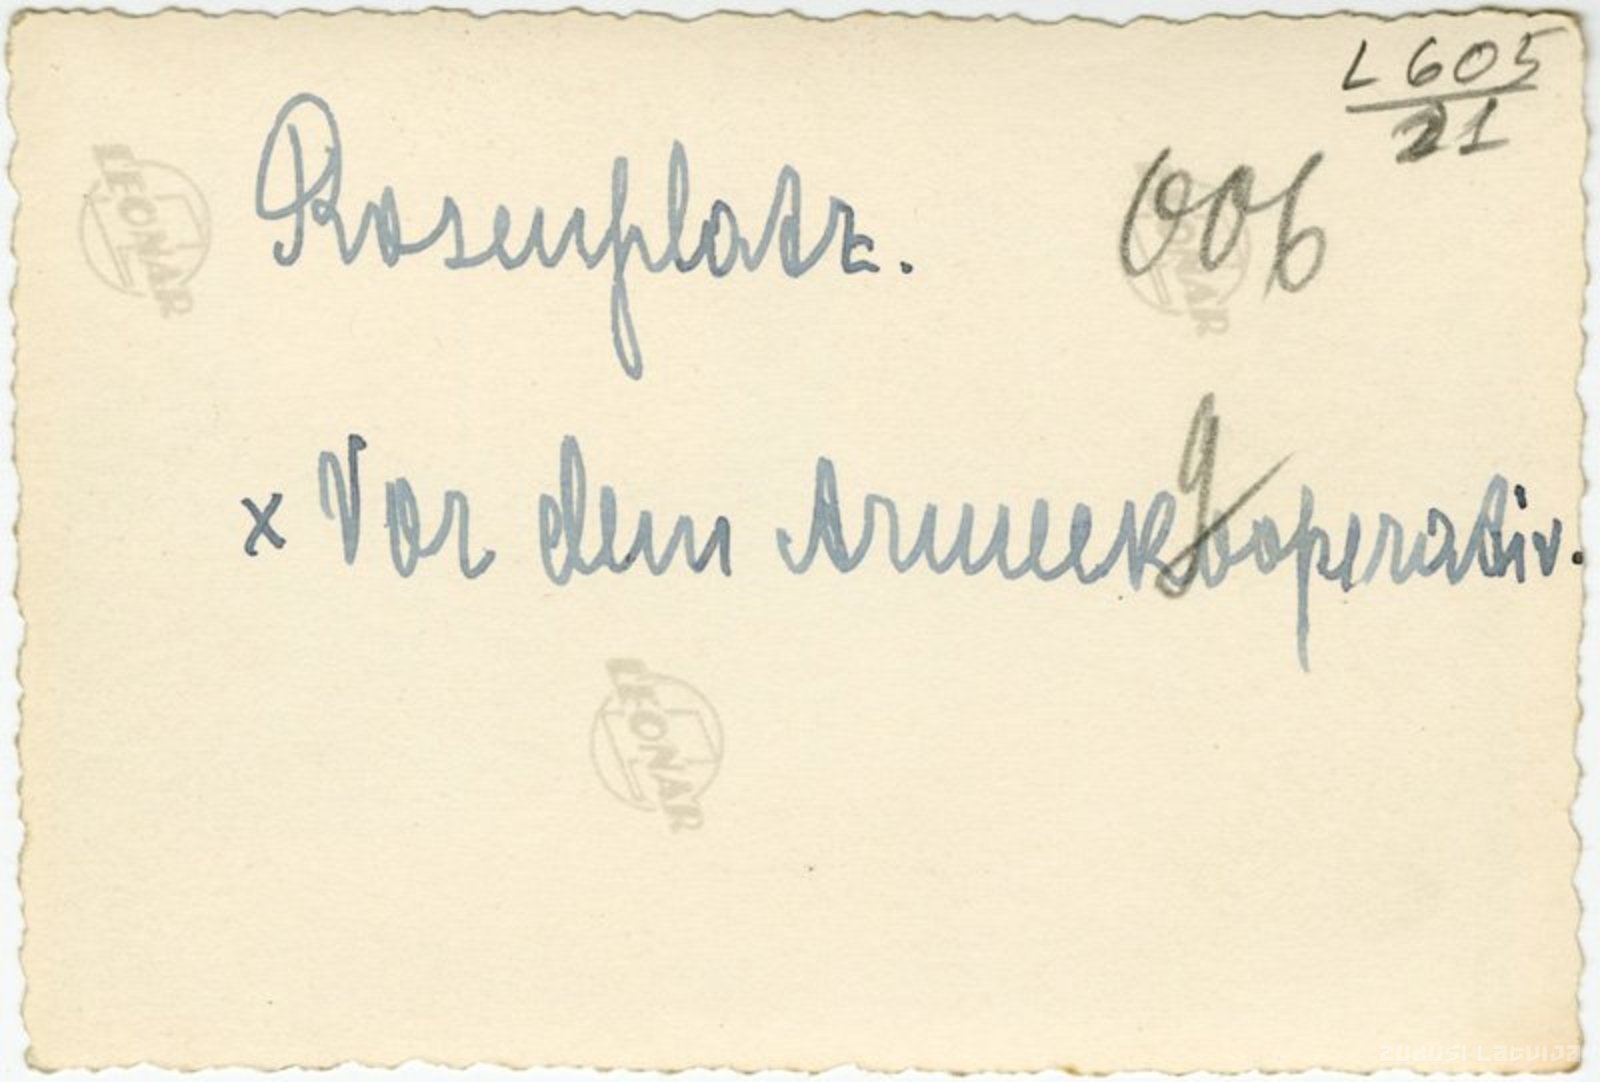 L 605
21
006
Rosenplatz.
x Vor dem Armeekooperativ.
LEONAR
LEONAR
LEONAR
zudusi Latvija